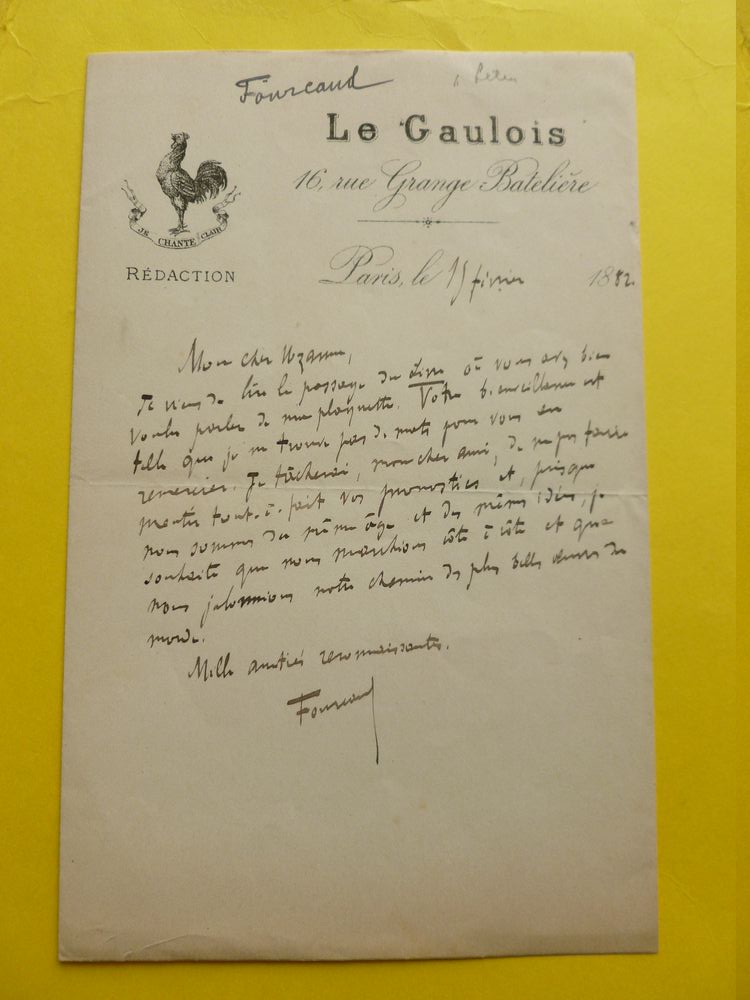 Fourcaud
Le Gaulois
16, rue Grange Batelière
JE CHANTE CLAIR
RÉDACTION
Paris, le 15 février 1882
Mon cher Uzanne,
Je viens de lire le passage du livre où vous avez bien
voulu parler de ma plaquette. Votre bienveillance est
telle que je ne trouve pas de mots pour vous en
remercier. Je tâcherai, mon cher ami, de ne pas faire
mentir tout-à-fait vos pronostics et, puisque
nous sommes du même âge et des mêmes idées, je
souhaite que nous marchions côte à côte et que
nous jalonnions notre chemin des plus belles œuvres du
monde.
Mille amitiés reconnaissantes.
Fourcaud